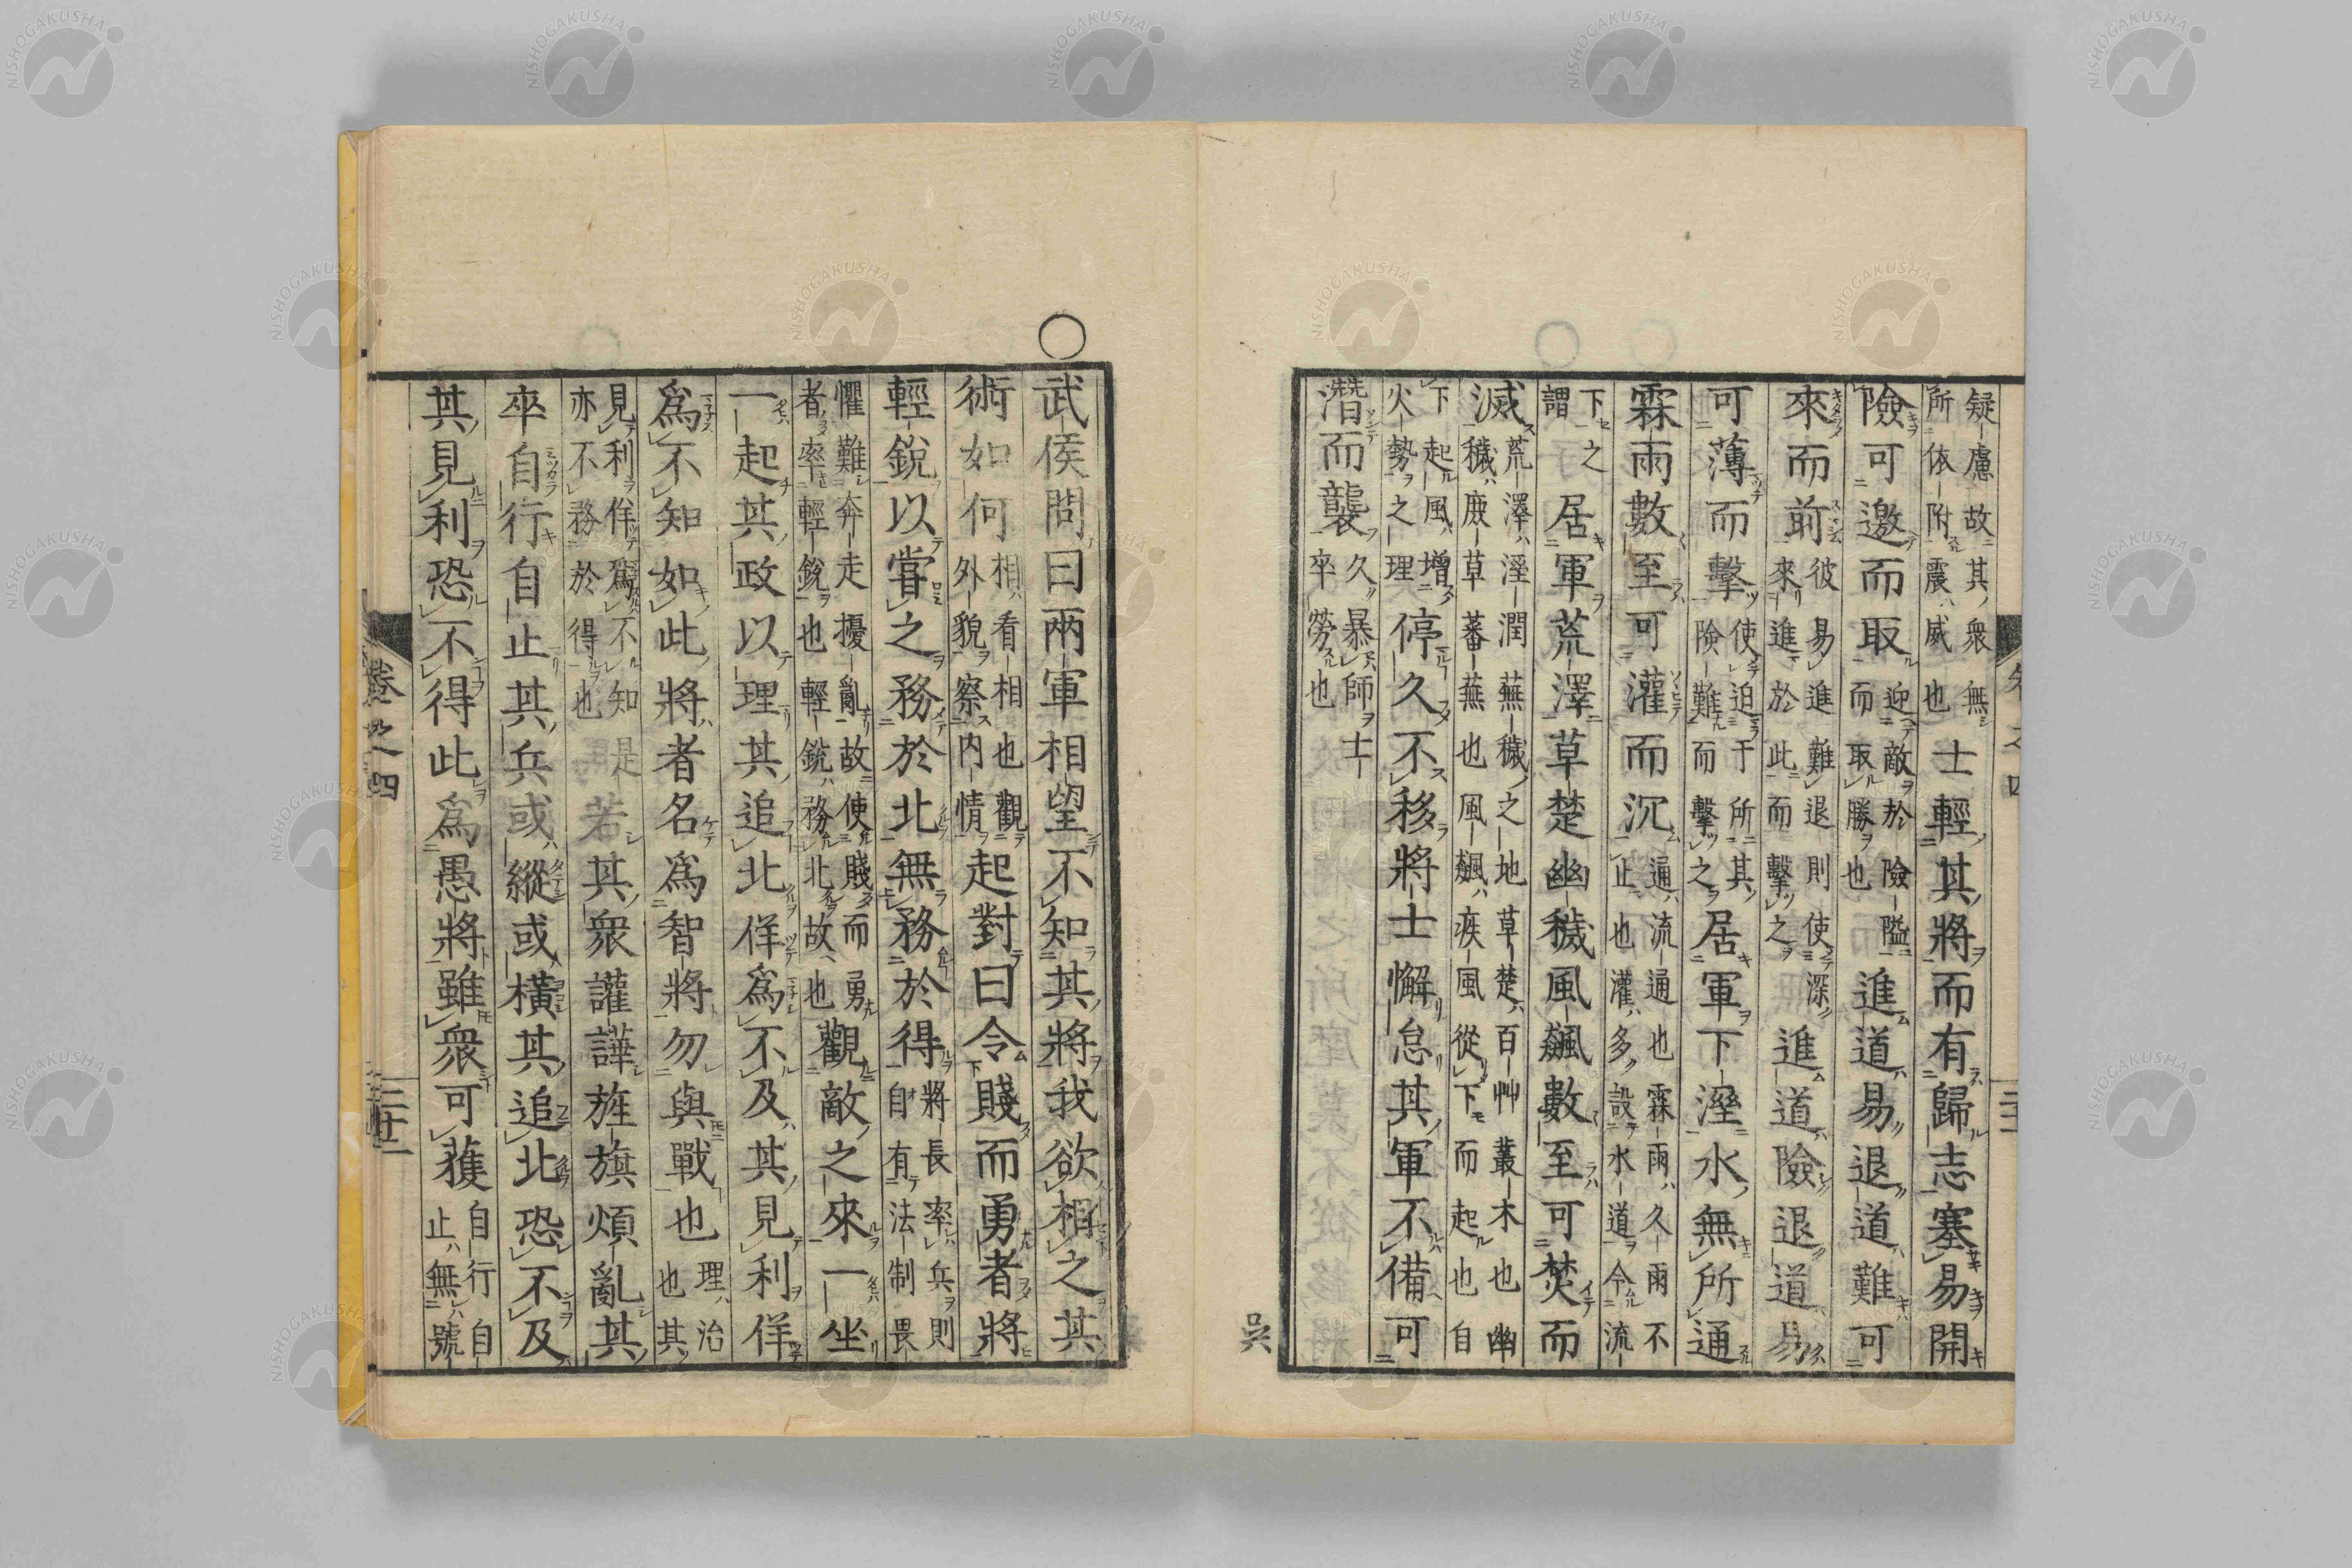 疑慮故其衆無
所依附震威也
士輕其將而有歸志塞易開
險可邀而取
迎敵於險隘
而取勝也
進道易退道難可
來而前
彼易進難退則使深
來進於此而擊之
進道險退道易
可薄而擊
使迫于所其
險難而擊之
居軍下溼水無所通
霖雨數至可灌而沉
通流通也霖雨久雨不
止也灌多設水道令流
下之
謂
居軍荒澤草楚幽穢風飆數至可焚而
滅
荒澤溼潤蕪穢之地草楚百艸叢木也幽
穢廀草蕃蕪也風飆疾風從下而起也自
下起風增
火勢之理
停久不移將士懈怠其軍不備可
潛而襲
久暴師士
卒勞也
吳
武侯問曰兩軍相望不知其將我欲相之其
術如何
相看相也觀
外貌察内情
起對曰令賤而勇者將
輕銳以嘗之務於北無務於得
將長率兵則
自有法制畏
懼難奔走擾亂故使賤而勇
者率輕銳也輕銳務北故也
觀敵之來一坐
一起其政以理其追北佯爲不及其見利佯
爲不知如此將者名爲智將勿與戰也
理治
也其
見利佯爲不知是
亦不務於得也
若其衆讙譁旌旗煩亂其
卒自行自止其兵或縱或橫其追北恐不及
其見利恐不得此爲愚將雖衆可獲
自行自
止無號
卷之四
NISHOGAKUSHA